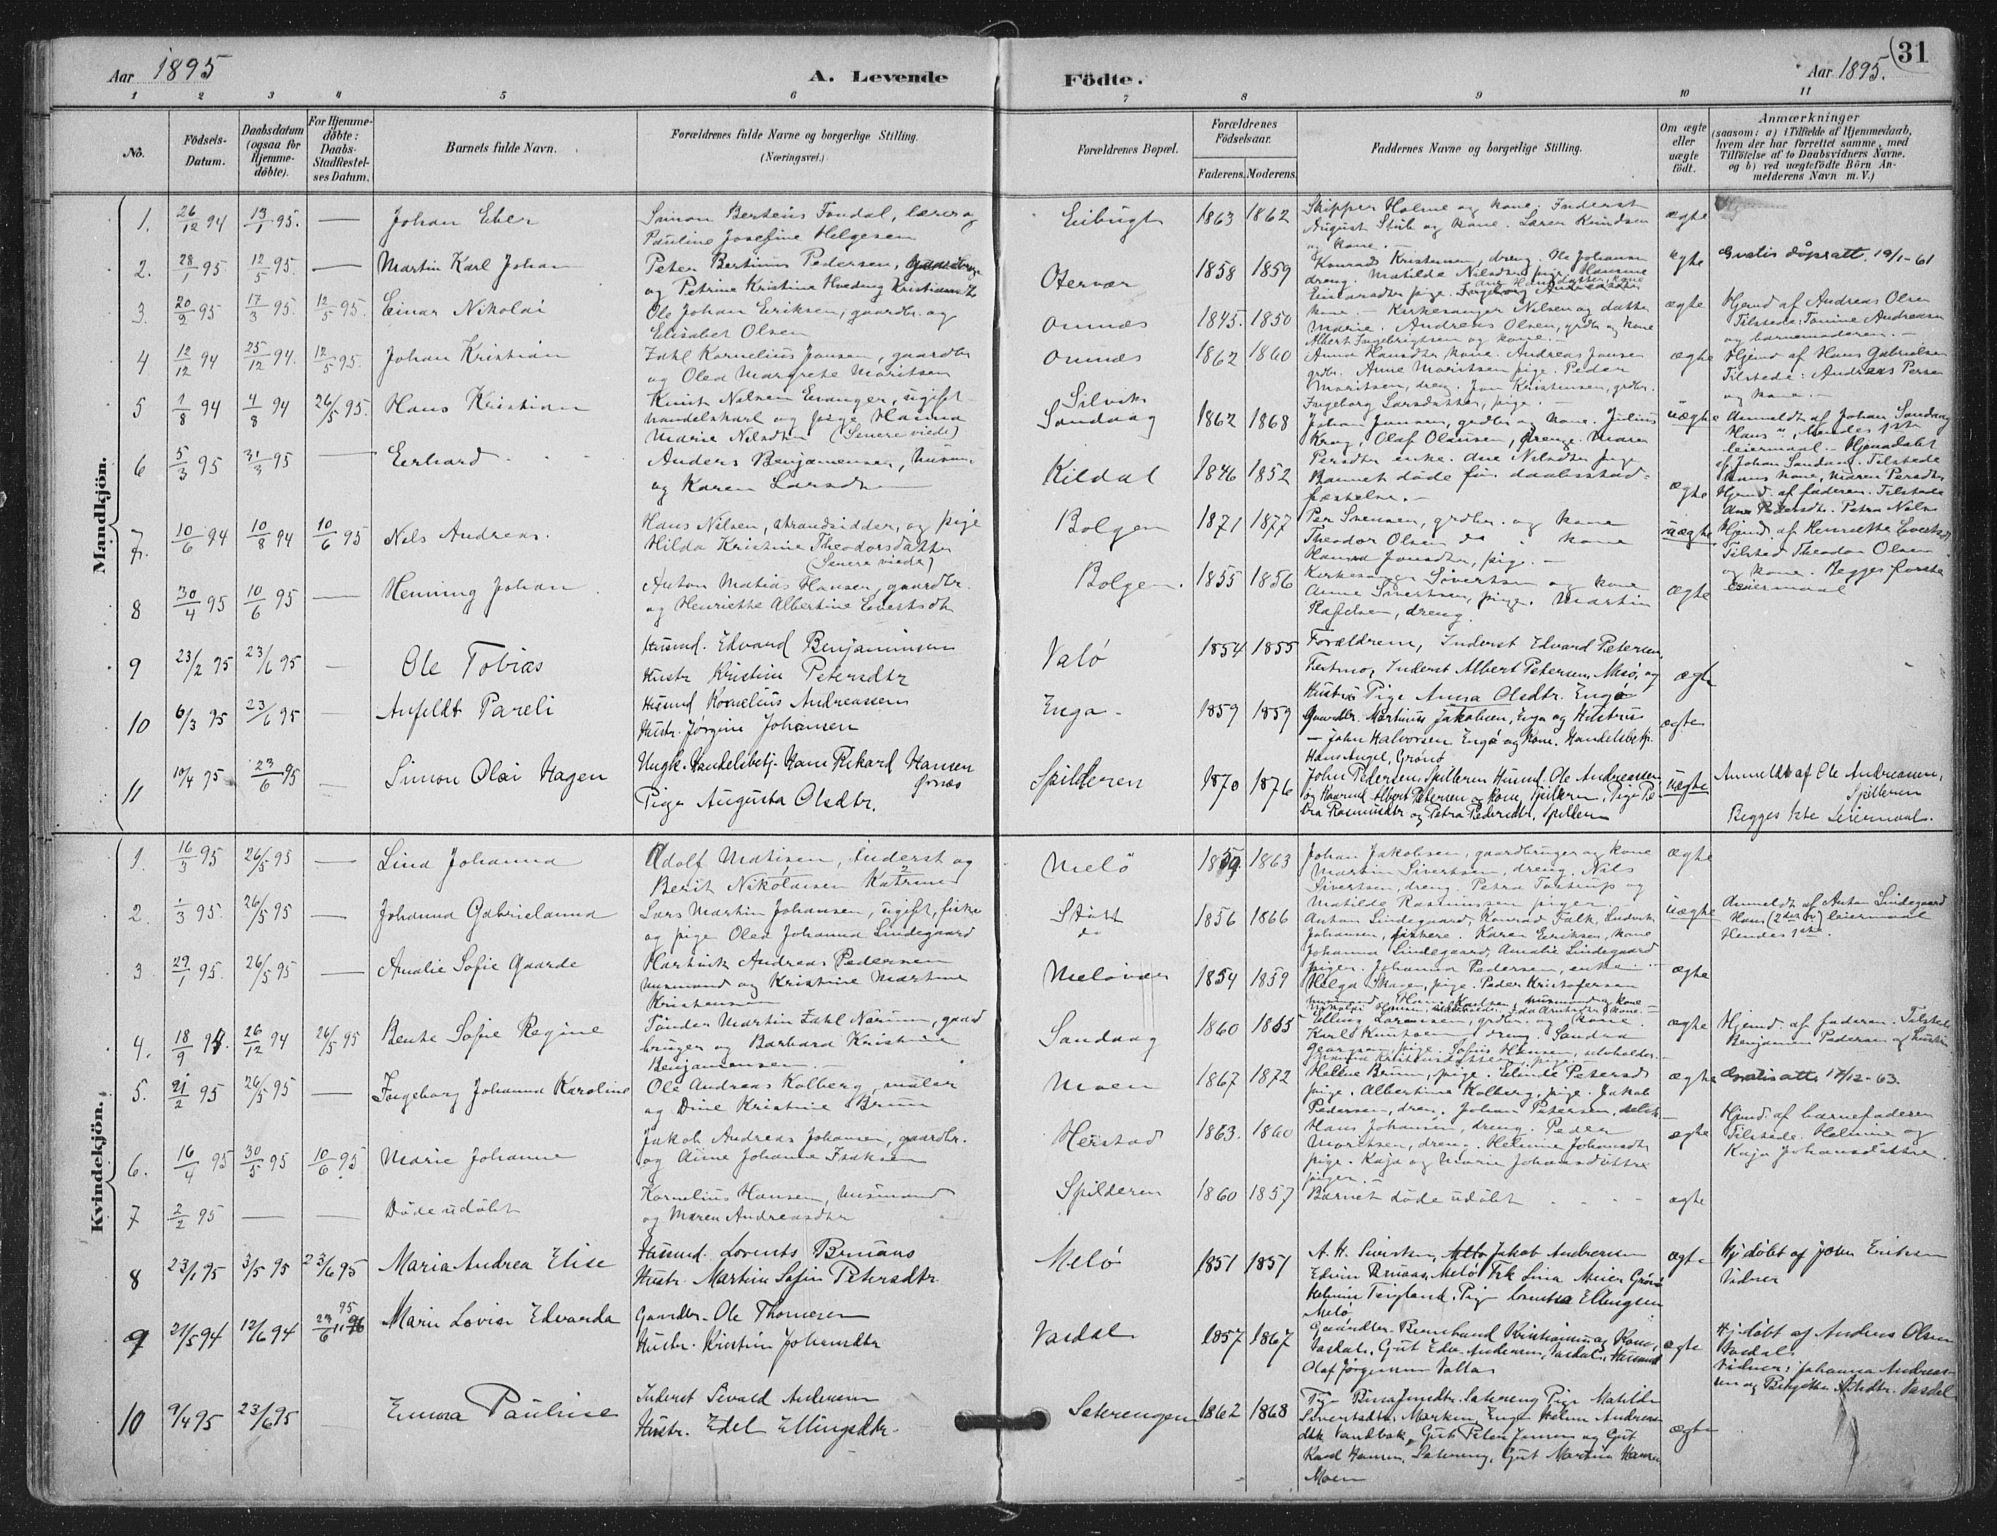 Aar 1895
A. Levende
Födte.
Aar 1895.
31
1 2 3 4 5 6 7 8 9 10 11
No.
Födsels-Datum.
Daabsdatum (ogsaa for Hjemme-döbte).
For Hjemme-döbte: Daabs-Stadfæstel-ses Datum.
Barnets fulde Navn.
Forældrenes fulde Navne og borgerlige Stilling.
(Næringsvei.)
Forældrenes Bopæl.
Forældrenes Födselsaar.
Faderens. Moderens.
Faddernes Navne og borgerlige Stilling.
Om ægte eller uægte födt.
Anmærkninger
(saasom: a) i Tilfælde af Hjemmedaab,
hvem der har forrettet samme, med
Tilföielse af to Daabsvidners Navne,
og b) ved uægtefödte Börn An-
melderens Navn m. V.)
Mandkjön.
1. 26/12 94 13/1 95. — Johan Eber
Simon Berteus Fondal, lærer og
Pauline Josefine Helgesen
Eibugt 1863 1862
Skipper Holme og kone. Inderst
August Stub og kone. Søren Knudsen
og kone. —
ægte
2. 28/1 95. 12/5 95. — Martin Karl Johan
Peter Bertinus Pedersen,
og Petrine Kristine Hveding Kristians
Otervær 1858 1859
Konrad Kristensen, dreng. Ole Johansen
dreng. Matilde Nilsdtr pige. Hansine
ægte
Gratis dåpsatt. 19/1-61
3. 20/2 95 17/3 95. 12/5 95. Einar Nikolai
Ole Johan Eriksen, gaardbr. og
Elisabet Olsen
Ornnes 1845. 1850
kone — Kirkesanger Nilsen og datter
Marie. Andreas Olsen, grdbr og kone
Albert Ingebrigtsen og kone. —
ægte
Hjemd af Andreas Olsen
Tilstede: Tonine Andreasen
og barnemoderen. —
4 12/12 94 25/12 94. 12/5 95. Johan Kristian
Zahl Kornelius Jansen, gaardbr
og Olea Margrete Moritsen
Ornnes 1862 1860
Anna Hansdtr kone. Andreas Jansen
grdbr. Anne Moritsen pige. Peder
Moritsen, dreng. Jan Kristensen, grdbr.
Ingeborg Larsdatter, pige. —
ægte
Hjemd af Hans Gabrielsen
Tilstede: Andreas Persen
og kone. —
5 1/8 94 4/8 94 26/5 95. Hans Kristian
Knut Nilsen Evanger, ugift
handelskarl og pige Hanna
Maria Nilsdtr (Senere viede)
Silvik
Sandaag 1862 1868
Johan Jansen, grdbr og kone. Julius
Krog, Olaf Olausen, drenge. Maren
Persdtr enke. Ane Nilsdtr pige
uægte
Anmeldt af Johan Sandaag
Hans " , hendes 1ste
leiermaal. Hjemdøbt
af Johan Sandaag. Tilstede
hans kone, Maren Persdtr
6 5/3 95 31/3 95 — Eerhard
Anders Benjaminsen, husm.
og Karen Larsdtr
Kildal 1846 1852
Barnet døde før daabsstad-
fæstelse. —
ægte
Hjemd. af faderen. Tilstede
Ane Petersdtr. Petra Nilsen
7. 10/6 94 10/8 94 10/6 95 Nils Andreas.
Hans Nilsen, strandsidder, og pige
Hilda Kristine Theodorsdatter
(Senere viede)
Bolgen 1871 1877
Per Sørensen, grdbr. og kone
Theodor Olsen do " kone
Hanna Jansdtr, pige. —
uægte
Hjemd. af Henriette Evertsdtr
Tilsted Theodor Olsen
og kone. Begges første
Leiermaal
8 30/4 95 10/6 95 — Henning Johan
Anton Matias Hansen, gaardbr.
og Henriette Albertine Evertsdtr
Bolgen. 1855 1856
Kirkesanger Sivertsen og kone
Anne Sivertsen, pige. Martin
Rafelsen, dreng.
ægte
9 23/2 95 23/6 95 — Ole Tobias
Husmd. Edvard Benjaminsen
Hustr Kristine Petersdtr
Valø 1854 1855
Forældrene, Inderst Edvard Petersen,
Tertmo, Inderst Albert Petersen, Mesø, og
Hustru Pige Anna Olsdtr. Engø
ægte
10 6/3 95 23/6 95 — Anfeldt Pareli
Husmd Kornelius Andreassen
Hustr. Jørgine Johansen
Enga - 1859 1859
Gaardbr. Martinus Jakobsen, Enga og Hustru
— John Halvorsen Engø og kone. Handelsbetj.
Hans Angel, Grønø
ægte
11 10/4 95 23/6 95 — Simon Olai Hagen
Ungk. Handelsbetj. Hans Rikard Hansen
Ørnæs
Pige Augusta Olsdtr.
Spilderen 1870 1876
John Pedersen, Spilderen Husmd. Ole Andreassen
og Kaarmd Albert Petersen og kone, Spilderen, Pige Pe-
tra Rasmusdtr og Petra Pedersdtr, Spilderen
uægte
Anmeldt af Ole Andreassen,
Spilderen
Begges 1ste Leiermaal.
Kvindekjön.
1. 16/3 95 26/5 95 — Lina Johanna
Adolf Matisen, Inderst og
Berit Nikolaisen Katrine
Melö 1859. 1863
Johan Jakobsen, gaardbruger og kone
Martin Sivertsen, dreng. Nils
Sivertsen, dreng. Petra Torstrup og
Matilde Rasmussen piger
ægte
2. 1/3 95. 26/5 95 — Johanna Gabrielanna
Lars Martin Johansen, ugift, fisker
og pige Olea Johanna Lindegaard
Støtt
do 1856 1866
Anton Lindegaard, Konrad Falk, Ludvik
Johansen, fiskere. Karen Eriksen, kone
Johanna Lindegaard, Amalie Lindegaard
piger. Johanna Pedersen, enke. —
uægte
Anmeldt af Anton Lindegaard
Hans (2det) leiermaal
Hendes 1ste.
3. 29/1 95. 26/5 95 — Amalie Sofie Gaarde
Hartvik Andreas Pedersen
husmand og Kristine Martine
Kristensen
Melövær 1854 1859
Helga Skagen, pige. Peder Kristofersen
husmand, Hans Karlsen, husmand og kone —
ægte
4. 18/9 94 26/12 94 26/5 95 Bente Sofie Regine
Tønder Martin Zahl Nerum, gaard
bruger og Barbara Kristine
Benjaminsen. —
Sandaag 1860 1865
Elling Larsen, grdbr. og kone.
Karl Knutsen, dreng. Sandra
Georgsen pige. Sofus Hansen, selvholder
ægte
Hjemd. af faderen. Tilstede
Benjamin Pedersen og hustru
5. 21/2 95 26/5 95 — Ingeborg Johanna Karoline
Ole Andreas Kolberg, maler
og Dine Kristine Bruun
Moen 1867 1872
Helene Bruun, pige. Elinde Petersd
pige. Albertine Kolberg, pige. Jakob
Pedersen, dren. Johan Petersen, selv-
ægte
Gratis att. 17/12-63.
6. 16/4 95 30/5 95 10/6 95 Marie Johanne
Jakob Andreas Johansen, gaardbr.
og Anne Johanne Isaksen
Herstad 1863. 1860
Hans Johansen, dreng. Peder
Moritsen, dreng. Helmine Johansdtr
pige. Kaja og Marie Johansdøttre
piger. —
ægte
Hjemd. af barnefaderen
Tilstede. Helmine og
Kaja Johansdøttre.
7 2/2 95 — — Døde udøbt
Kornelius Hansen, husmand
og Maren Andreasdtr
Spilderen 1860 1857
Barnet døde udøbt
ægte
8 23/1 95 3/5 95 23/6 95 Maria Andrea Elise
Husmd. Lorents Bruaas
Hustr. Martine Sofie Petersdtr.
Melø 1851 1851
A. H. Sivertsen, Melø, Jakob Andersen
Edvin Bruaas, Melø Frk Lina Meier Grønø
Helmine Teigland. Pige Lorentsa Ellingsen
Melø
ægte
Hj. døbt af John Eriksen
Vidner
9 21/5 94 12/6 94 23/6 95 Marie Lovise Edvarda
Gaardbr. Ole Thomesen
Hustr. Kristine Johansdtr
Vasdal 1857 1867
Gaardbr. Bernhard Kristiansen og Kone,
Vasdal, Gut Edv. Andersen, Vasdal, Husmd
Olaf Jørgensen Valla
ægte
Hj. døbt af Anders Olsen
Vasdal
Vidner: Johanna Andreas-
sen og Bergitte Olsdtr. Vasdal
10 9/4 95 23/6 95 — Emma Pauline
Inderst Sivald Andersen
Hustr. Edel Ellingsdtr.
Saterengen 1862 1868
Pige Bina Jensdtr. Satereng Pige Matilde
Siversdtr, Marken, Enga Helene Andreas-
dtr Vandbak, Gut Peter Jensen og Gut
Kaad Hansen, Satereng, Gut Martin Hansen
Moen
ægte